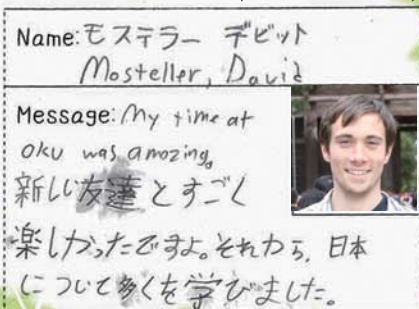 Name:モステラー デビット
Mosteller, David
Message: My time at
OKU was amazing.
新しい友達とすごく
楽しかったですよ。それから、日本
について多くを学びました。